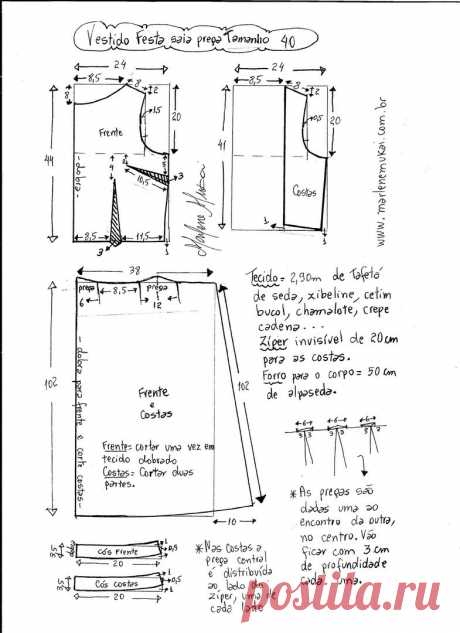 Vestido Festa saia prega Tamanho 40
24
8,5
8
2
8
1,5
20
Frente
44
- dobra -
4
2
3
10,5
3
8,5
11,5
3
1
Marlene Mukai
24
8,5
8
2
0,5
20
41
Costas
1
1
www.marlenemukai.com.br
38
prega
8,5
prega
6
12
102
102
- dobra para frente e corte costas -
Frente
e
Costas
Frente = cortar uma vez em
tecido dobrado
Costas = Cortar duas
partes.
10
Tecido = 2,90m de Tafetá
de seda, xibeline, cetim
bucol, chamalote, crepe
cadena...
Zíper invisível de 20cm
para as costas.
Forro para o corpo = 50cm
de alpaseda.
6
6
6
3
3
3
3
3
* As pregas são
dadas uma ao
encontro da outra,
no centro. Vão
ficar com 3cm
de profundidade
cada uma.
3,5
Cós Frente
1
0,5
20
3,5
Cós costas
1
0,5
20
1
* Nas Costas a
prega central
é distribuída
ao lado do
zíper, uma de
cada lado
postila.ru